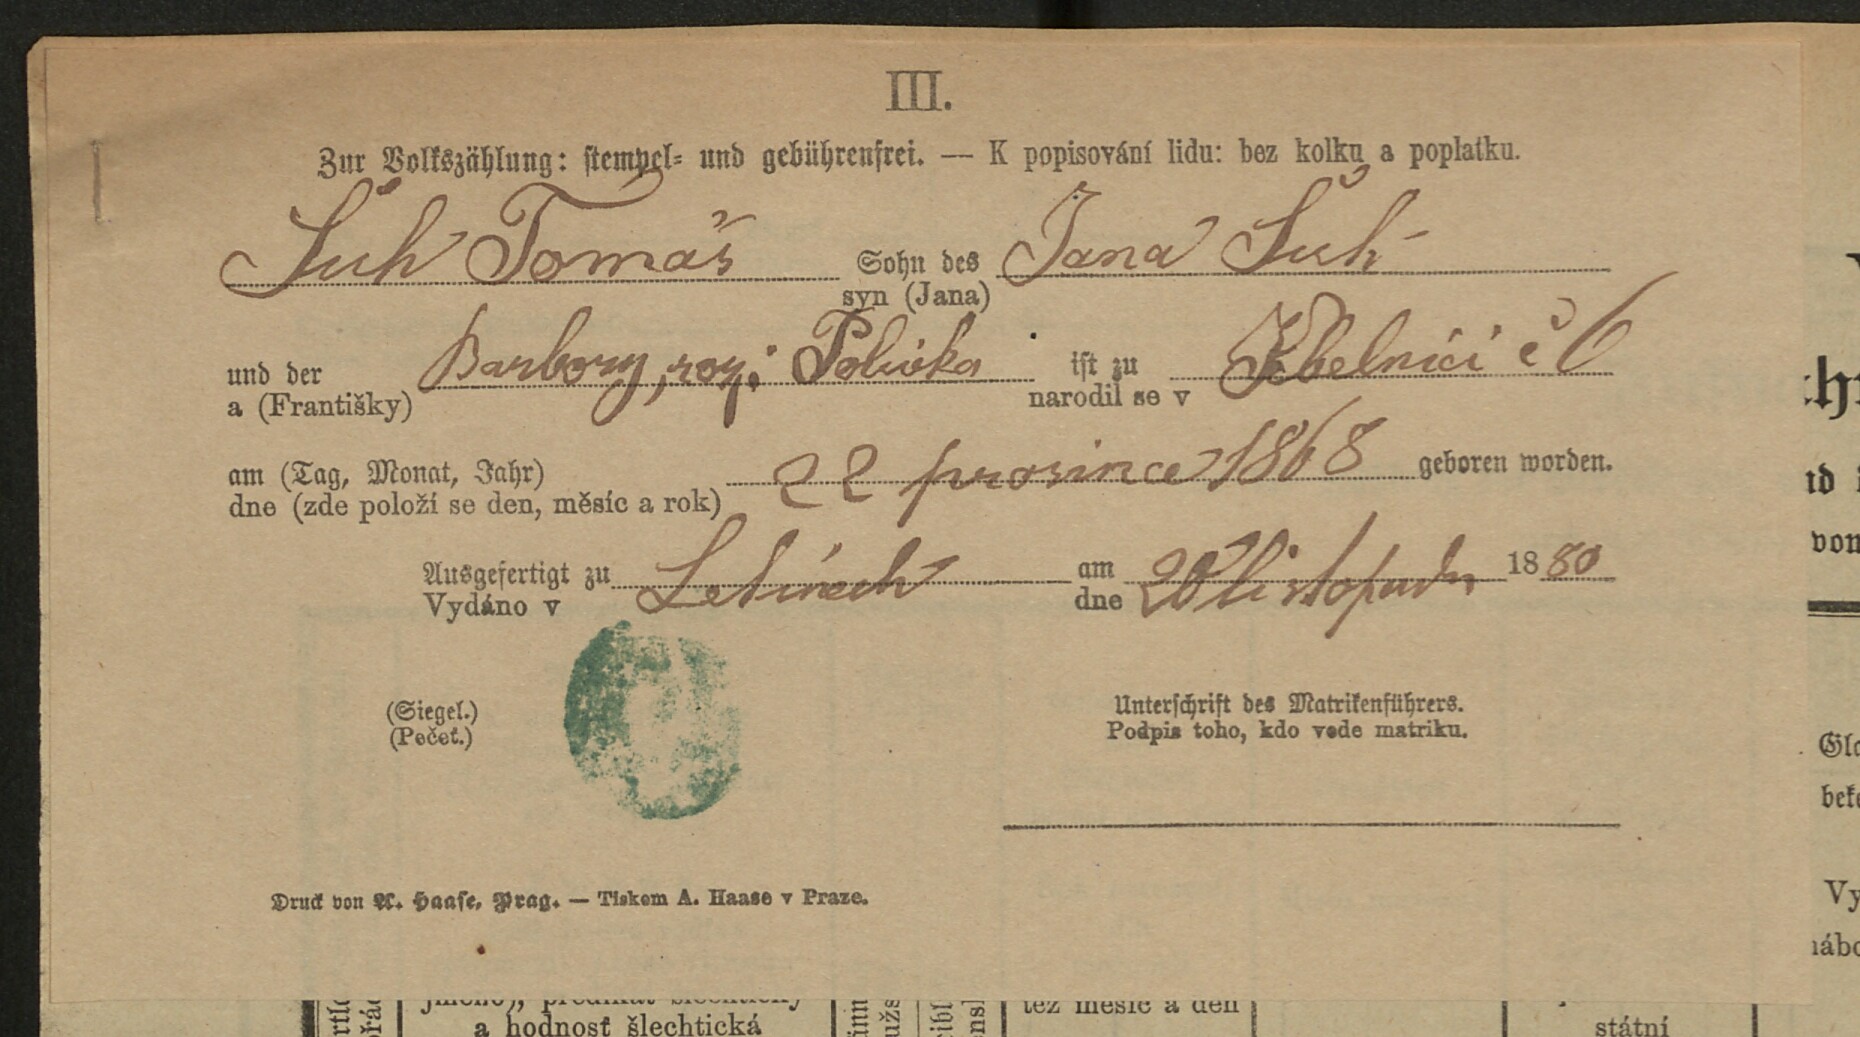 III.
Zur Volkszählung: stempel= und gebührenfrei. — K popisování lidu: bez kolku a poplatku.
Šuh Tomáš Sohn des Jana Šuh
syn (Jana)
und der Barbory, roz: Polívka ist zu Kbelnici č 6
a (Františky) narodil se v
am (Tag, Monat, Jahr) 22 prosince 1868 geboren worden.
dne (zde položí se den, měsíc a rok)
Ausgefertigt zu Letinech am 20 listopadu 1880
Vydáno v dne
(Siegel.) Unterschrift des Matrikenführers.
(Pečeť.) Podpis toho, kdo vede matriku.
Druck von A. Haase, Prag. — Tiskem A. Haase v Praze.
a hodnosť šlechtická
též měsíc a den
státní